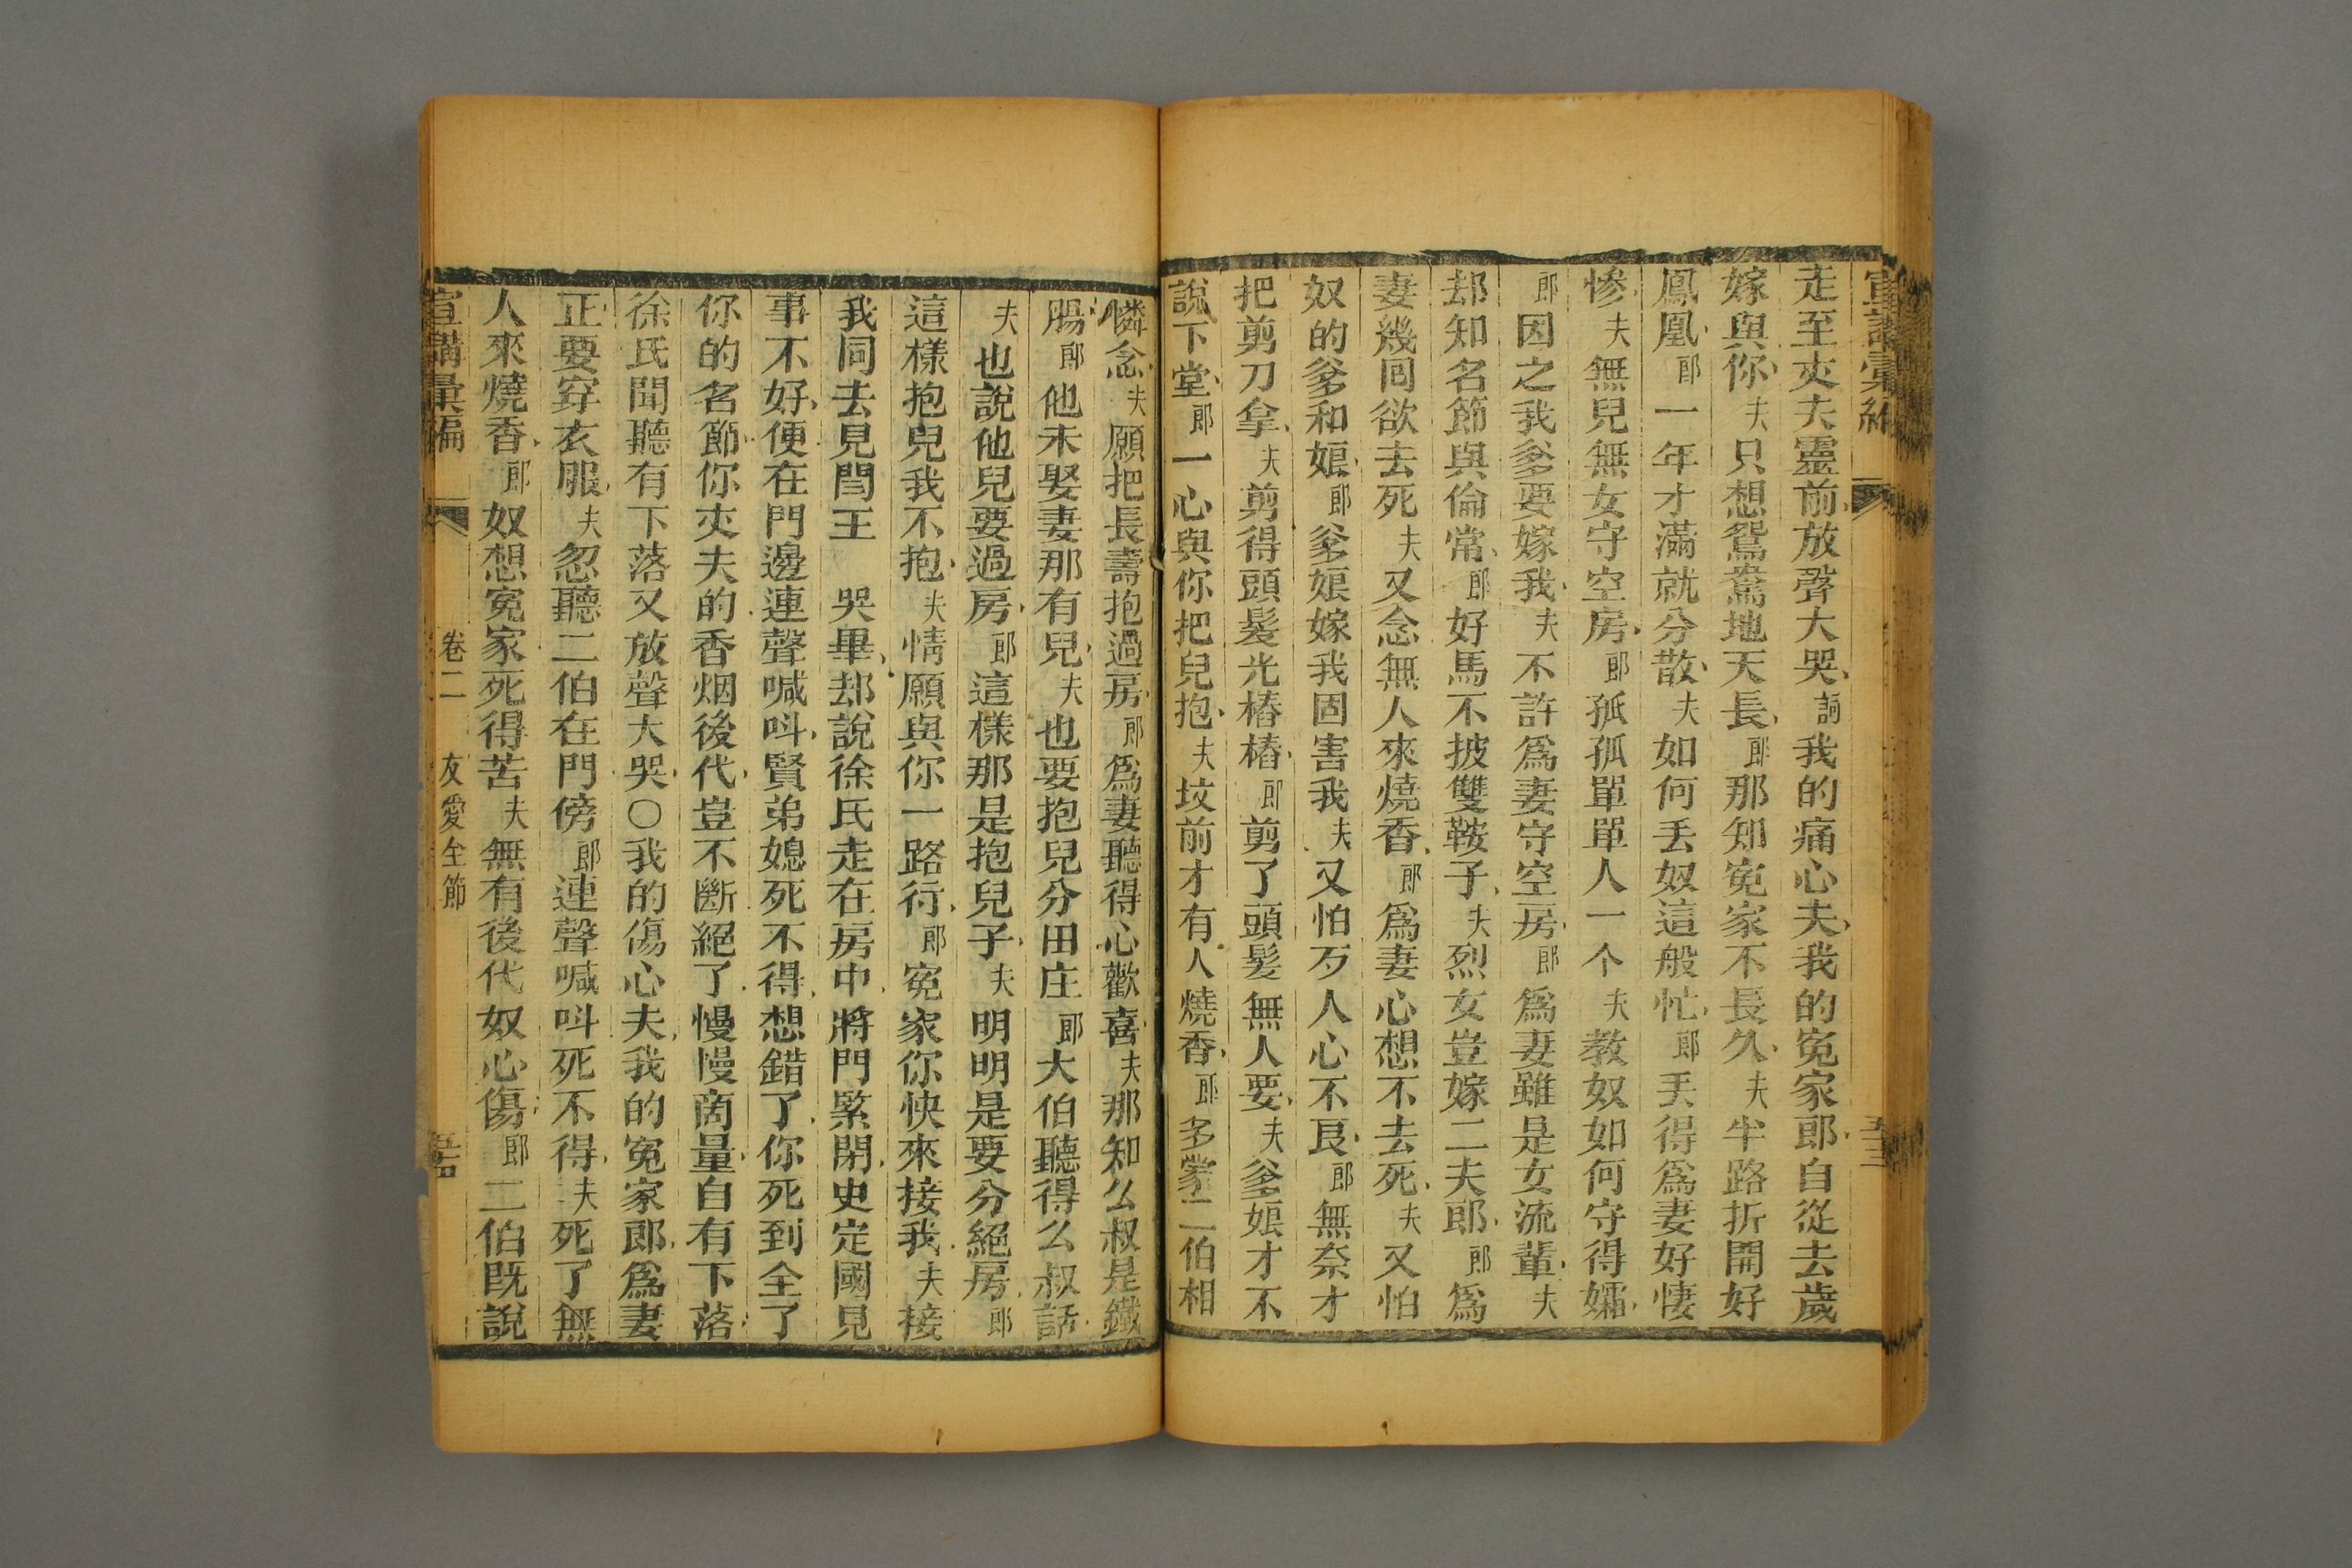 宣講彙編
五十三
走至丈夫靈前放聲大哭詞我的痛心夫我的冤家郎自從去歲
嫁與你夫只想鴛鴦地天長郎那知冤家不長久夫半路折開好
鳳凰郎一年才滿就分散夫如何丟奴這般忙郎丟得爲妻好悽
慘夫無兒無女守空房郎孤孤單單人一个夫教奴如何守得孀
郎因之我爹要嫁我夫不許爲妻守空房郎爲妻雖是女流輩夫
却知名節與倫常郎好馬不披雙鞍子夫烈女豈嫁二夫郎郎爲
妻幾囘欲去死夫又念無人來燒香郎爲妻心想不去死夫又怕
奴的爹和娘郎爹娘嫁我固害我夫又怕歹人心不良郎無奈才
把剪刀拿夫剪得頭髮光樁樁郎剪了頭髮無人要夫爹娘才不
說下堂郎一心與你把兒抱夫坟前才有人燒香郎多蒙二伯相
憐念夫願把長壽抱過房郎爲妻聽得心歡喜夫那知么叔是鐵
腸郎他未娶妻那有兒夫也要抱兒分田庄郎大伯聽得么叔話
夫也說他兒要過房郎這樣那是抱兒子夫明明是要分絕房郎
這樣抱兒我不抱夫情願與你一路行郎冤家你快來接我夫接
我同去見閻王 哭畢却說徐氏走在房中將門緊閉史定國見
事不好便在門邊連聲喊呌賢弟媳死不得想錯了你死到全了
你的名節你丈夫的香烟後代豈不斷絕了慢慢商量自有下落
徐氏聞聽有下落又放聲大哭○我的傷心夫我的冤家郎爲妻
正要穿衣服夫忽聽二伯在門傍郎連聲喊呌死不得夫死了無
人來燒香郎奴想冤家死得苦夫無有後代奴心傷郎二伯既說
宣講彙編 卷二 友愛全節 五十四